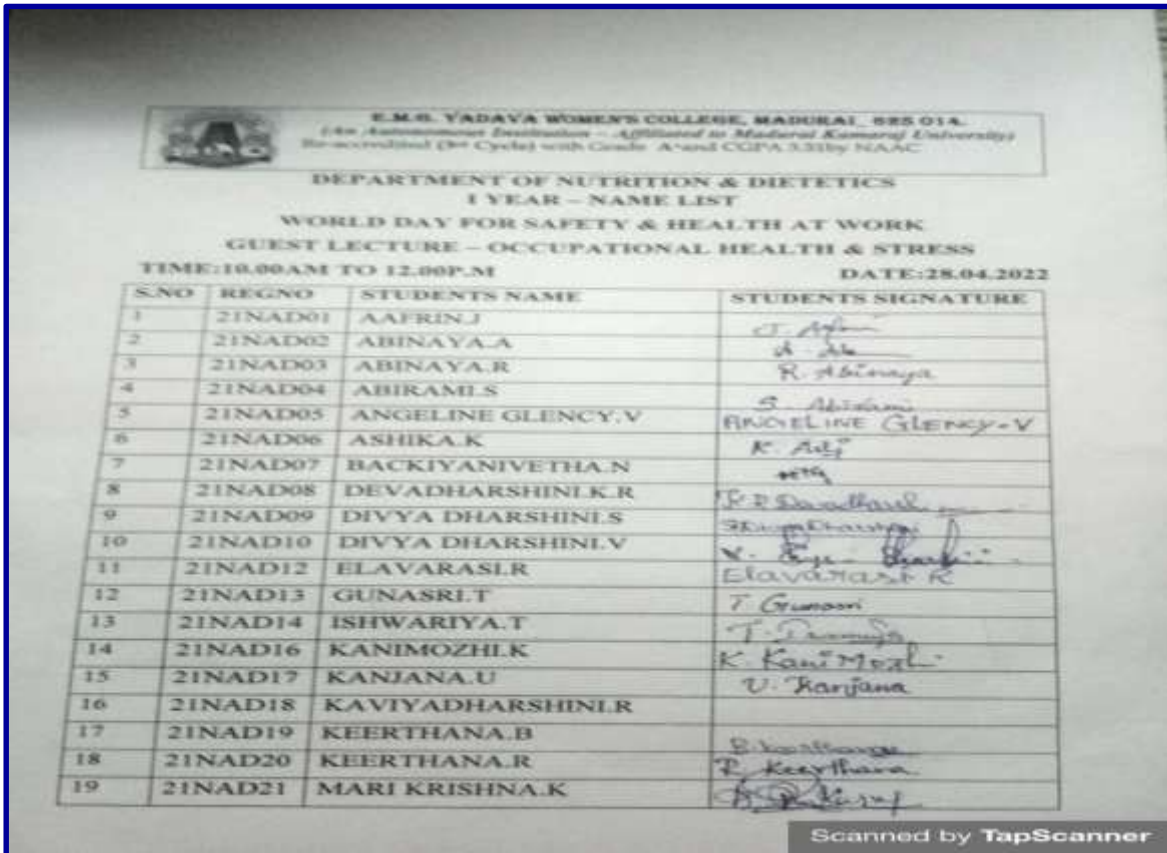 E.M.G. YADAVA WOMEN'S COLLEGE, MADURAI_ 625 014.
(An Autonomous Institution – Affiliated to Madurai Kamaraj University)
Re-accredited (3rd Cycle) with Grade A+ and CGPA 3.51 by NAAC
DEPARTMENT OF NUTRITION & DIETETICS
I YEAR – NAME LIST
WORLD DAY FOR SAFETY & HEALTH AT WORK
GUEST LECTURE – OCCUPATIONAL HEALTH & STRESS
TIME:10.00AM TO 12.00P.M DATE:28.04.2022
S.NO REGNO STUDENTS NAME STUDENTS SIGNATURE
1 21NAD01 AAFRIN.J
2 21NAD02 ABINAYA.A
3 21NAD03 ABINAYA.R R. Abinaya
4 21NAD04 ABIRAMI.S S. Abirami
5 21NAD05 ANGELINE GLENCY.V ANGELINE GLENCY-V
6 21NAD06 ASHIKA.K
7 21NAD07 BACKIYANIVETHA.N
8 21NAD08 DEVADHARSHINI.K.R
9 21NAD09 DIVYA DHARSHINI.S
10 21NAD10 DIVYA DHARSHINI.V
11 21NAD12 ELAVARASI.R Elavarasi R
12 21NAD13 GUNASRI.T T. Gunasri
13 21NAD14 ISHWARIYA.T
14 21NAD16 KANIMOZHI.K K. KaniMozhi
15 21NAD17 KANJANA.U U. Kanjana
16 21NAD18 KAVIYADHARSHINI.R
17 21NAD19 KEERTHANA.B B. Keerthana
18 21NAD20 KEERTHANA.R R. Keerthana
19 21NAD21 MARI KRISHNA.K
Scanned by TapScanner